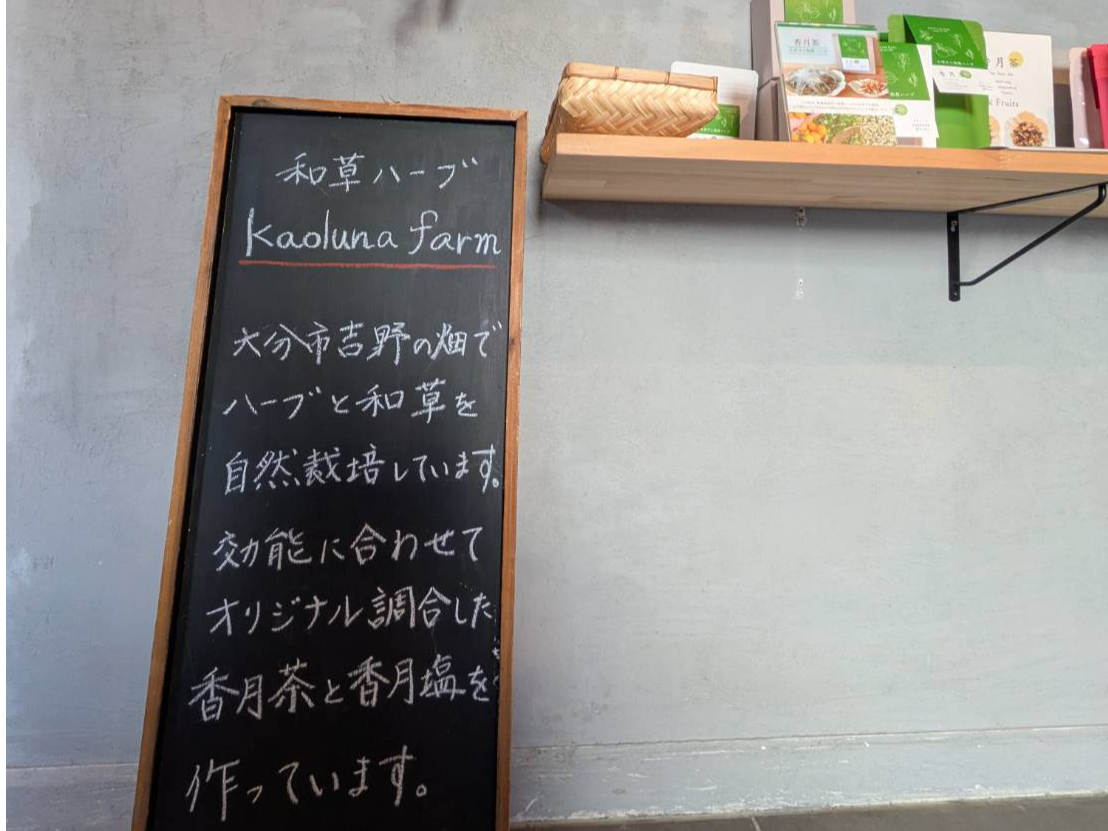 和草ハーブ
kaoluna farm
大分市吉野の畑で
ハーブと和草を
自然栽培しています。
効能に合わせて
オリジナル調合した
香月茶と香月塩を
作っています。
香月茶
月茶
& Fruits